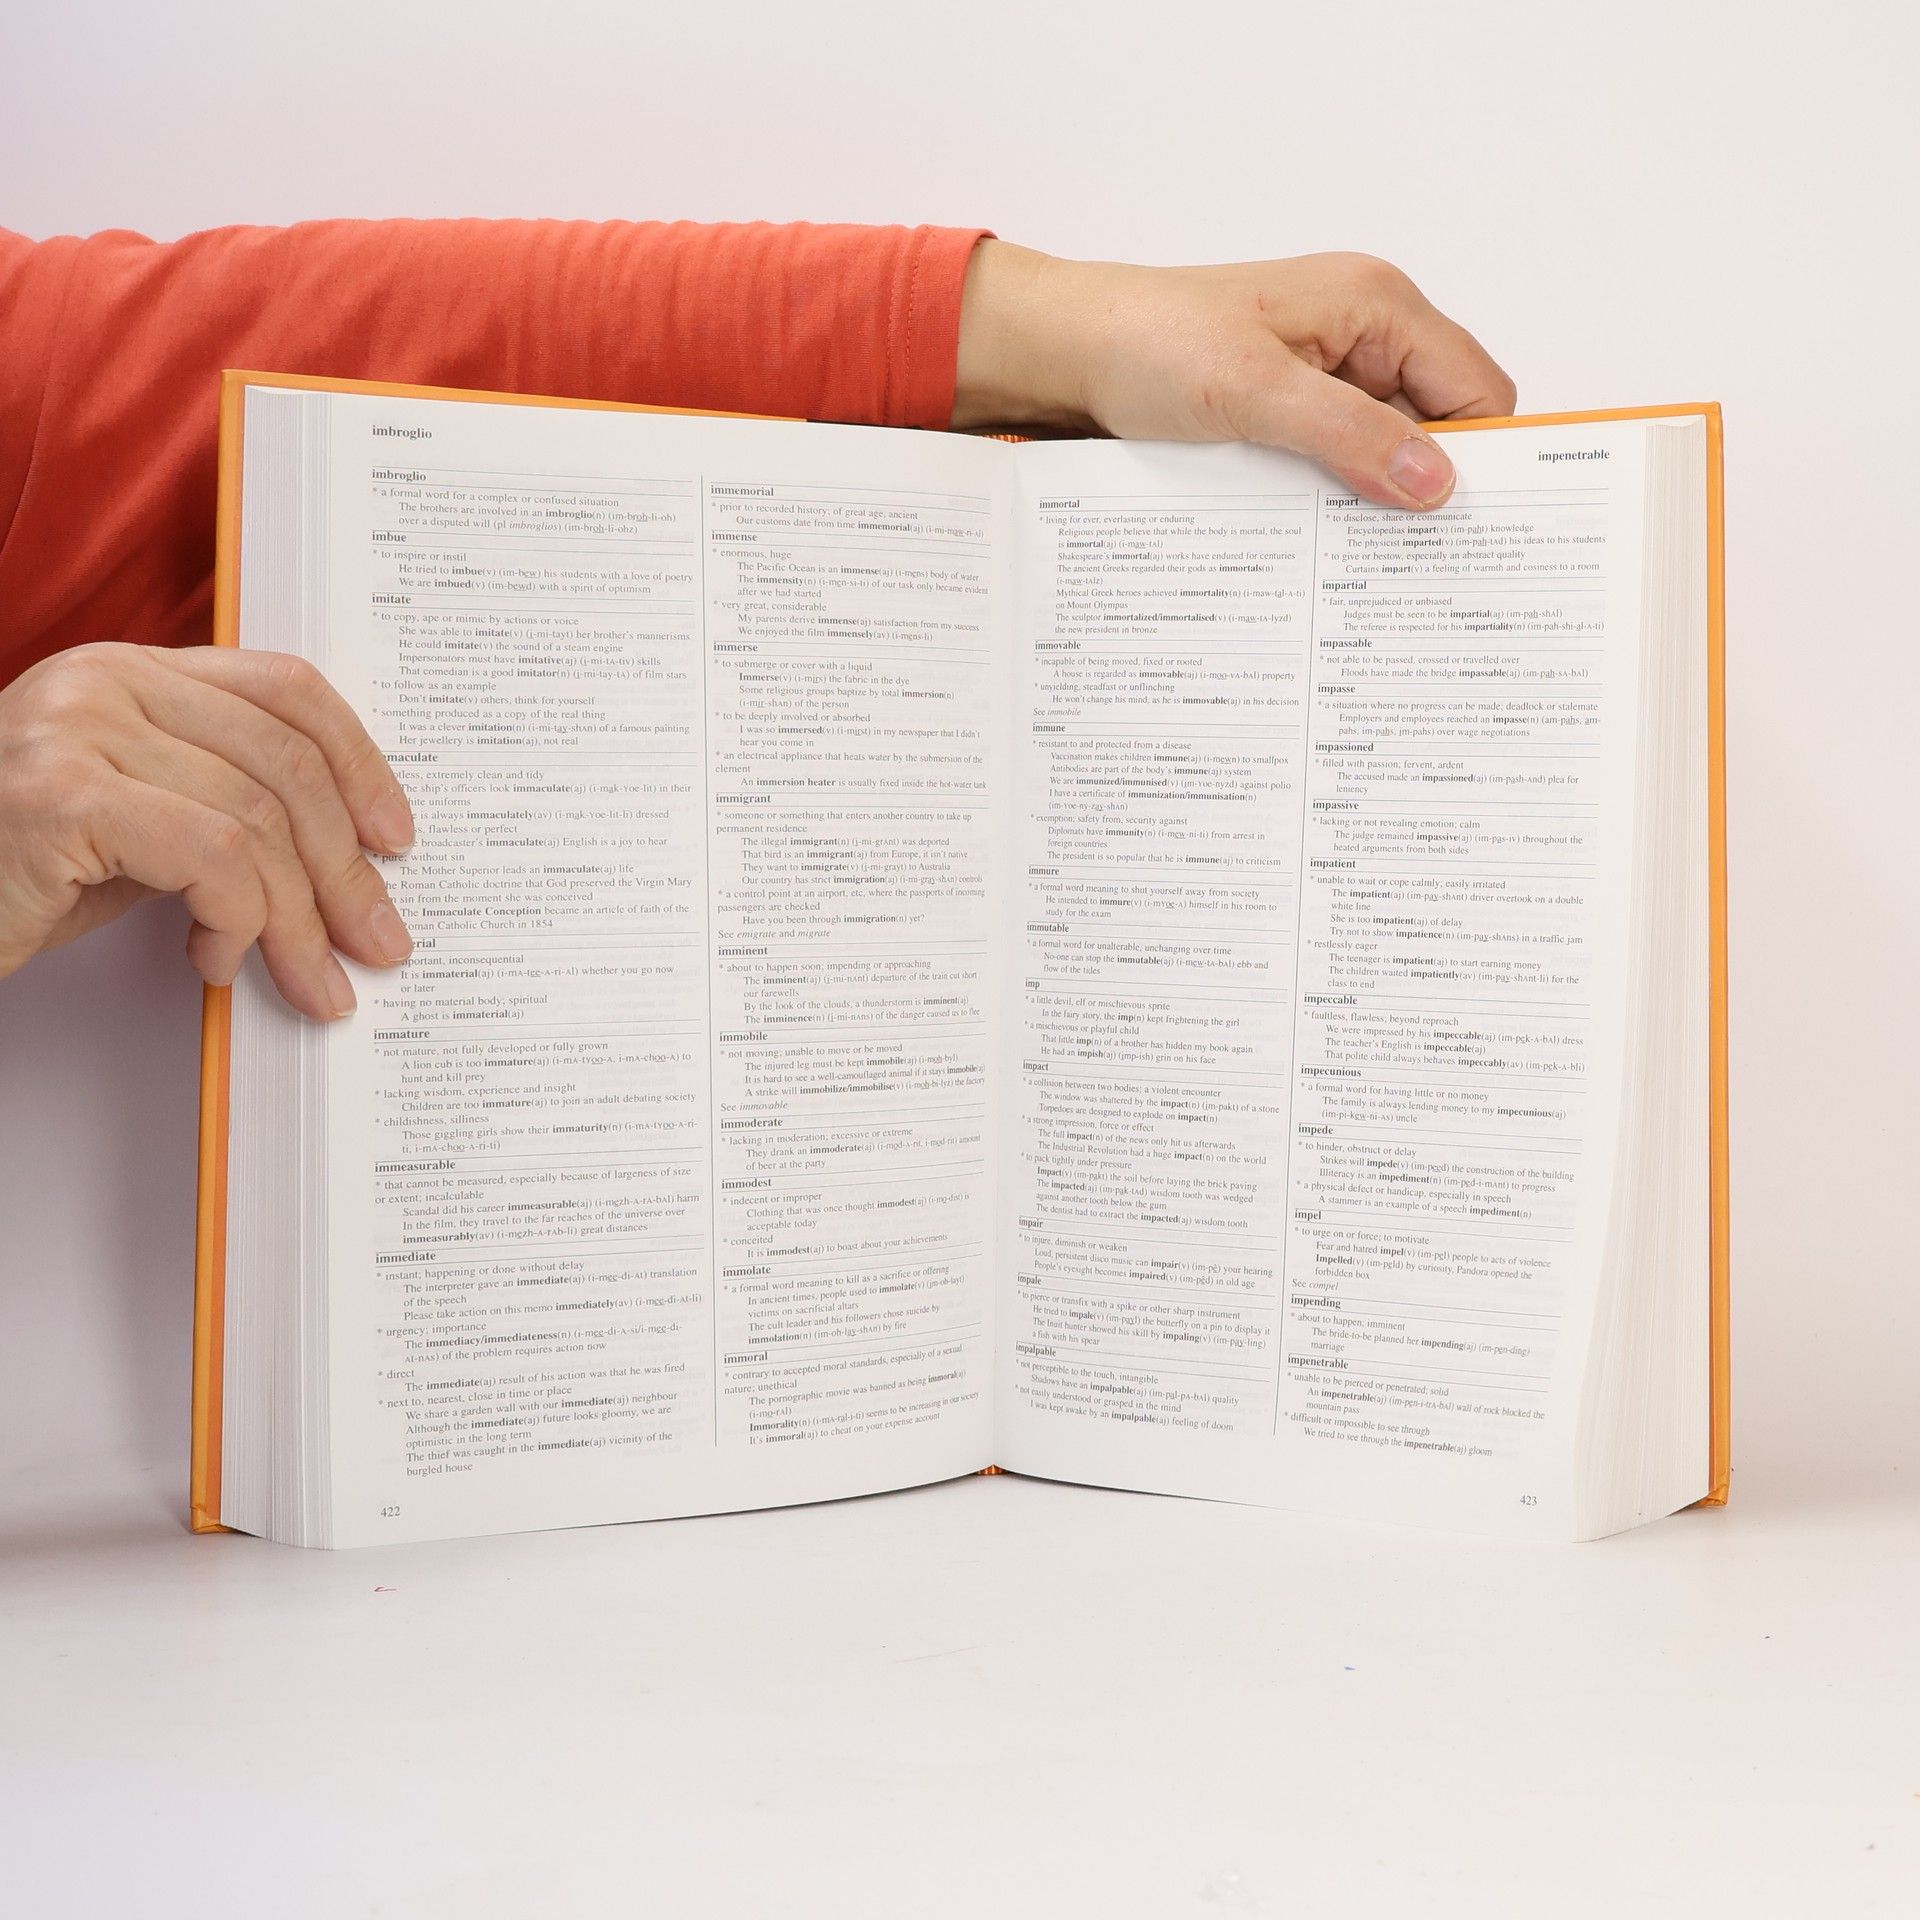 imbroglio
imbroglio
* a formal word for a complex or confused situation
The brothers are involved in an imbroglio(n) (im-broh-li-oh)
over a disputed will (pl imbroglios) (im-broh-li-ohz)
imbue
* to inspire or instil
He tried to imbue(v) (im-bew) his students with a love of poetry
We are imbued(v) (im-bewd) with a spirit of optimism
imitate
* to copy, ape or mimic by actions or voice
She was able to imitate(v) (i-mi-tayt) her brother's mannerisms
He could imitate(v) the sound of a steam engine
Impersonators must have imitative(aj) (i-mi-tA-tiv) skills
That comedian is a good imitator(n) (i-mi-tay-tA) of film stars
* to follow as an example
Don't imitate(v) others, think for yourself
* something produced as a copy of the real thing
It was a clever imitation(n) (i-mi-tay-shAn) of a famous painting
Her jewellery is imitation(aj), not real
maculate
otless, extremely clean and tidy
The ship's officers look immaculate(aj) (i-mak-YOE-lit) in their
hite uniforms
e is always immaculately(av) (i-mak-YOE-lit-li) dressed
ss, flawless or perfect
e broadcaster's immaculate(aj) English is a joy to hear
* pure; without sin
The Mother Superior leads an immaculate(aj) life
he Roman Catholic doctrine that God preserved the Virgin Mary
m sin from the moment she was conceived
The Immaculate Conception became an article of faith of the
oman Catholic Church in 1854
erial
portant, inconsequential
It is immaterial(aj) (i-mA-tee-A-ri-Al) whether you go now
or later
* having no material body; spiritual
A ghost is immaterial(aj)
immature
* not mature, not fully developed or fully grown
A lion cub is too immature(aj) (i-mA-tYOO-A, i-mA-choo-A) to
hunt and kill prey
* lacking wisdom, experience and insight
Children are too immature(aj) to join an adult debating society
* childishness, silliness
Those giggling girls show their immaturity(n) (i-mA-tYOO-A-ri-
ti, i-mA-choo-A-ri-ti)
immeasurable
* that cannot be measured, especially because of largeness of size
or extent; incalculable
Scandal did his career immeasurable(aj) (i-mezh-A-rA-bAl) harm
In the film, they travel to the far reaches of the universe over
immeasurably(av) (i-mezh-A-rAb-li) great distances
immediate
* instant; happening or done without delay
The interpreter gave an immediate(aj) (i-mee-di-At) translation
of the speech
Please take action on this memo immediately(av) (i-mee-di-At-li)
* urgency; importance
The immediacy/immediateness(n) (i-mee-di-A-si/i-mee-di-
At-nAs) of the problem requires action now
* direct
The immediate(aj) result of his action was that he was fired
* next to, nearest, close in time or place
We share a garden wall with our immediate(aj) neighbour
Although the immediate(aj) future looks gloomy, we are
optimistic in the long term
The thief was caught in the immediate(aj) vicinity of the
burgled house
422
immemorial
* prior to recorded history; of great age, ancient
Our customs date from time immemorial(aj) (i-mi-maw-ri-Al)
immense
* enormous, huge
The Pacific Ocean is an immense(aj) (i-mens) body of water
The immensity(n) (i-men-si-ti) of our task only became evident
after we had started
* very great, considerable
My parents derive immense(aj) satisfaction from my success
We enjoyed the film immensely(av) (i-mens-li)
immerse
* to submerge or cover with a liquid
Immerse(v) (i-mirs) the fabric in the dye
Some religious groups baptize by total immersion(n)
(i-mir-shAn) of the person
* to be deeply involved or absorbed
I was so immersed(v) (i-mirst) in my newspaper that I didn't
hear you come in
* an electrical appliance that heats water by the submersion of the
element
An immersion heater is usually fixed inside the hot-water tank
immigrant
* someone or something that enters another country to take up
permanent residence
The illegal immigrant(n) (i-mi-grAnt) was deported
That bird is an immigrant(aj) from Europe, it isn't native
They want to immigrate(v) (i-mi-grayt) to Australia
Our country has strict immigration(aj) (i-mi-gray-shAn) controls
* a control point at an airport, etc, where the passports of incoming
passengers are checked
Have you been through immigration(n) yet?
See emigrate and migrate
imminent
* about to happen soon; impending or approaching
The imminent(aj) (i-mi-nAnt) departure of the train cut short
our farewells
By the look of the clouds, a thunderstorm is imminent(aj)
The imminence(n) (i-mi-nAns) of the danger caused us to flee
immobile
* not moving; unable to move or be moved
The injured leg must be kept immobile(aj) (i-moh-byl)
It is hard to see a well-camouflaged animal if it stays immobile(aj)
A strike will immobilize/immobilise(v) (i-moh-bi-lyz) the factory
See immovable
immoderate
* lacking in moderation; excessive or extreme
They drank an immoderate(aj) (i-mod-A-rit, i-mod-rit) amount
of beer at the party
immodest
* indecent or improper
Clothing that was once thought immodest(aj) (i-mo-dist) is
acceptable today
* conceited
It is immodest(aj) to boast about your achievements
immolate
* a formal word meaning to kill as a sacrifice or offering
In ancient times, people used to immolate(v) (im-oh-layt)
victims on sacrificial altars
The cult leader and his followers chose suicide by
immolation(n) (im-oh-lay-shAn) by fire
immoral
* contrary to accepted moral standards, especially of a sexual
nature; unethical
The pornographic movie was banned as being immoral(aj)
(i-mo-rAl)
Immorality(n) (i-mA-ral-i-ti) seems to be increasing in our society
It's immoral(aj) to cheat on your expense account
impenetrable
immortal
* living for ever, everlasting or enduring
Religious people believe that while the body is mortal, the soul
is immortal(aj) (i-maw-tAl)
Shakespeare's immortal(aj) works have endured for centuries
The ancient Greeks regarded their gods as immortals(n)
(i-maw-tAlz)
Mythical Greek heroes achieved immortality(n) (i-maw-tal-A-ti)
on Mount Olympus
The sculptor immortalized/immortalised(v) (i-maw-tA-lyzd)
the new president in bronze
immovable
* incapable of being moved, fixed or rooted
A house is regarded as immovable(aj) (i-moo-vA-bAl) property
* unyielding, steadfast or unflinching
He won't change his mind, as he is immovable(aj) in his decision
See immobile
immune
* resistant to and protected from a disease
Vaccination makes children immune(aj) (i-mewn) to smallpox
Antibodies are part of the body's immune(aj) system
We are immunized/immunised(v) (im-YOE-nyzd) against polio
I have a certificate of immunization/immunisation(n)
(im-YOE-ny-zay-shAn)
* exemption; safety from, security against
Diplomats have immunity(n) (i-mew-ni-ti) from arrest in
foreign countries
The president is so popular that he is immune(aj) to criticism
immure
* a formal word meaning to shut yourself away from society
He intended to immure(v) (i-mYOE-A) himself in his room to
study for the exam
immutable
* a formal word for unalterable, unchanging over time
No-one can stop the immutable(aj) (i-mew-tA-bAl) ebb and
flow of the tides
imp
* a little devil, elf or mischievous sprite
In the fairy story, the imp(n) kept frightening the girl
* a mischievous or playful child
That little imp(n) of a brother has hidden my book again
He had an impish(aj) (imp-ish) grin on his face
impact
* a collision between two bodies; a violent encounter
The window was shattered by the impact(n) (im-pakt) of a stone
Torpedoes are designed to explode on impact(n)
* a strong impression, force or effect
The full impact(n) of the news only hit us afterwards
The Industrial Revolution had a huge impact(n) on the world
* to pack tightly under pressure
Impact(v) (im-pakt) the soil before laying the brick paving
The impacted(aj) (im-pak-tAd) wisdom tooth was wedged
against another tooth below the gum
The dentist had to extract the impacted(aj) wisdom tooth
impair
* to injure, diminish or weaken
Loud, persistent disco music can impair(v) (im-pê) your hearing
People's eyesight becomes impaired(v) (im-pêd) in old age
impale
* to pierce or transfix with a spike or other sharp instrument
He tried to impale(v) (im-payl) the butterfly on a pin to display it
The Inuit hunter showed his skill by impaling(v) (im-pay-ling)
a fish with his spear
impalpable
* not perceptible to the touch, intangible
Shadows have an impalpable(aj) (im-pal-pA-bAl) quality
* not easily understood or grasped in the mind
I was kept awake by an impalpable(aj) feeling of doom
impart
* to disclose, share or communicate
Encyclopedias impart(v) (im-paht) knowledge
The physicist imparted(v) (im-pah-tAd) his ideas to his students
* to give or bestow, especially an abstract quality
Curtains impart(v) a feeling of warmth and cosiness to a room
impartial
* fair, unprejudiced or unbiased
Judges must be seen to be impartial(aj) (im-pah-shAl)
The referee is respected for his impartiality(n) (im-pah-shi-al-A-ti)
impassable
* not able to be passed, crossed or travelled over
Floods have made the bridge impassable(aj) (im-pah-sA-bAl)
impasse
* a situation where no progress can be made; deadlock or stalemate
Employers and employees reached an impasse(n) (am-pahs, am-
pahs, im-pahs, im-pahs) over wage negotiations
impassioned
* filled with passion; fervent, ardent
The accused made an impassioned(aj) (im-pash-And) plea for
leniency
impassive
* lacking or not revealing emotion; calm
The judge remained impassive(aj) (im-pas-iv) throughout the
heated arguments from both sides
impatient
* unable to wait or cope calmly; easily irritated
The impatient(aj) (im-pay-shAnt) driver overtook on a double
white line
She is too impatient(aj) of delay
Try not to show impatience(n) (im-pay-shAns) in a traffic jam
* restlessly eager
The teenager is impatient(aj) to start earning money
The children waited impatiently(av) (im-pay-shAnt-li) for the
class to end
impeccable
* faultless, flawless; beyond reproach
We were impressed by his impeccable(aj) (im-pek-A-bAl) dress
The teacher's English is impeccable(aj)
That polite child always behaves impeccably(av) (im-pek-A-bli)
impecunious
* a formal word for having little or no money
The family is always lending money to my impecunious(aj)
(im-pi-kew-ni-As) uncle
impede
* to hinder, obstruct or delay
Strikes will impede(v) (im-peed) the construction of the building
Illiteracy is an impediment(n) (im-ped-i-mAnt) to progress
* a physical defect or handicap, especially in speech
A stammer is an example of a speech impediment(n)
impel
* to urge on or force; to motivate
Fear and hatred impel(v) (im-pel) people to acts of violence
Impelled(v) (im-peld) by curiosity, Pandora opened the
forbidden box
See compel
impending
* about to happen; imminent
The bride-to-be planned her impending(aj) (im-pen-ding)
marriage
impenetrable
* unable to be pierced or penetrated; solid
An impenetrable(aj) (im-pen-i-trA-bAl) wall of rock blocked the
mountain pass
* difficult or impossible to see through
We tried to see through the impenetrable(aj) gloom
423